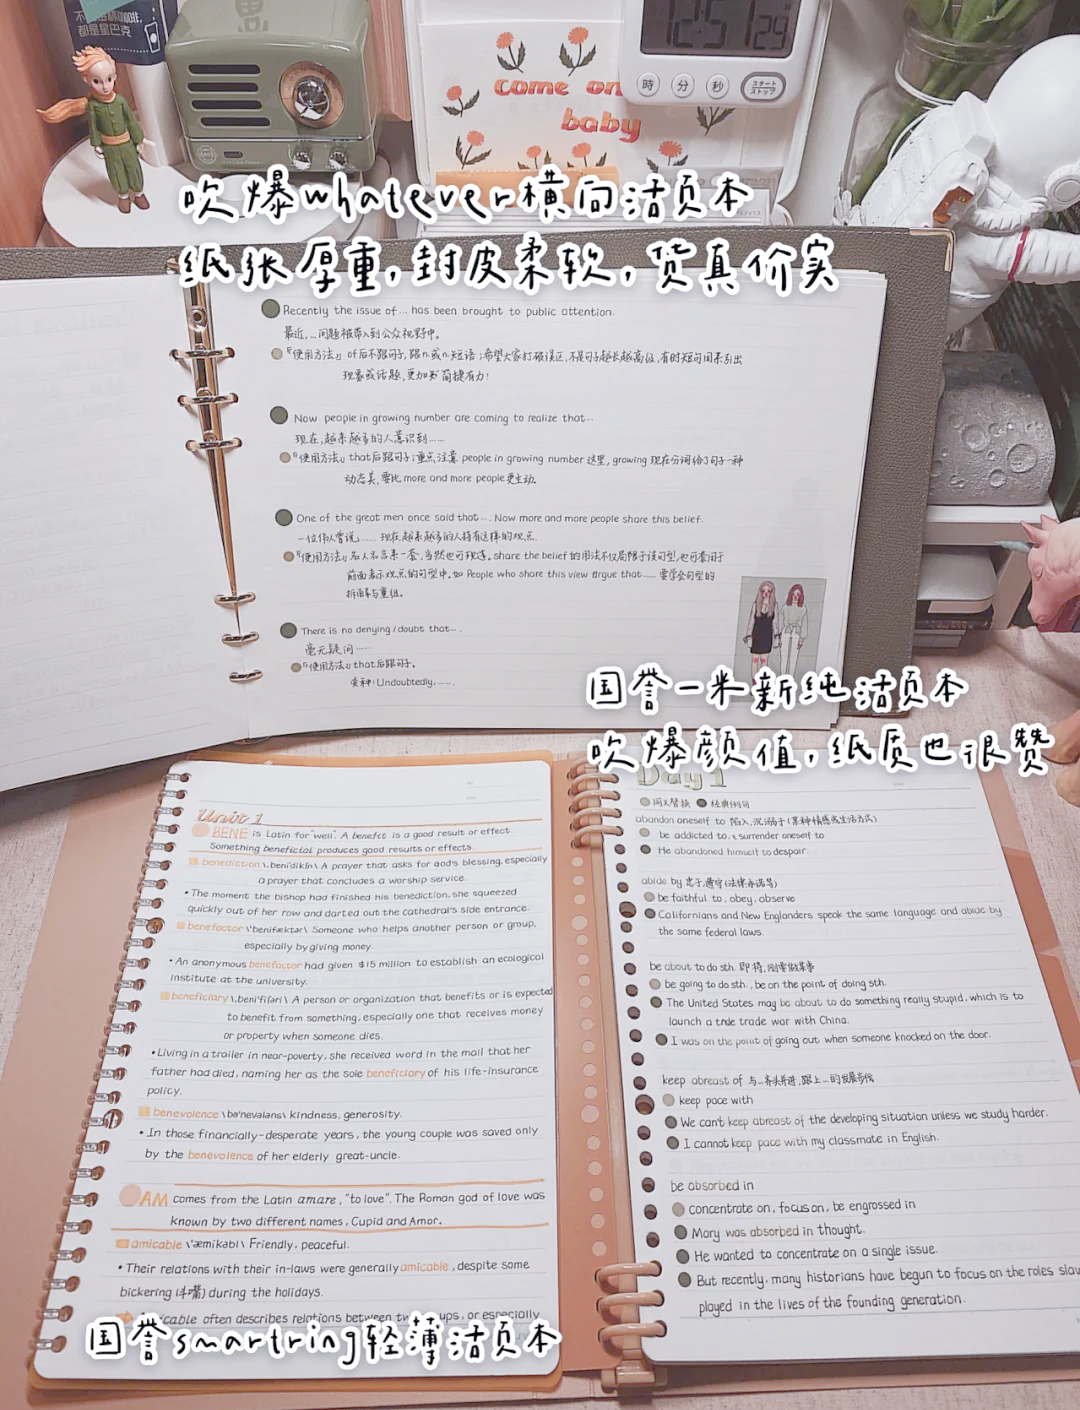 come on
baby
12 51 29
時 分 秒 スタート
ストップ
吹爆whatever横向活页本
纸张厚重,封皮柔软,货真价实
Recently the issue of ... has been brought to public attention.
最近,...问题被带入到公众视野中。
『使用方法』of后不跟句子,跟n.或n.短语;希望大家打破误区,不是句子越长越高级,有时短句用来引出
现象或话题,更加为简捷有力!
Now people in growing number are coming to realize that...
现在,越来越多的人意识到......
『使用方法』that后跟句子;重点注意 people in growing number 这里, growing 现在分词给了句子一种
动态美,要比 more and more people更生动。
One of the great men once said that... Now more and more people share this belief.
一位伟人曾说...... 现在越来越多的人持有这样的观点.
『使用方法』名人名言来一套,当然也可积连。share the belief的用法不仅局限于该句型,也可套用于
前面表示观点的句型中。如 People who share this view argue that...... 要学会句型的
拆解与重组。
There is no denying / doubt that...
毫无疑问......
『使用方法』that后跟句子。
变种: Undoubtedly, ......
国誉一米新纯活页本
吹爆颜值,纸质也很赞
Unit 1
BENE is Latin for "well". A benefit is a good result or effect.
Something beneficial produces good results or effects.
benediction \ˌbeniˈdikʃn\ A prayer that asks for god's blessing, especially
a prayer that concludes a worship service.
• The moment the bishop had finished his benediction, she squeezed
quickly out of her row and darted out the cathedral's side entrance.
benefactor \ˈbenifæktər\ Someone who helps another person or group,
especially by giving money.
• An anonymous benefactor had given $15 million to establish an ecological
institute at the university.
beneficiary \ˌbeniˈfiʃəri\ A person or organization that benefits or is expected
to benefit from something, especially one that receives money
or property when someone dies.
• Living in a trailer in near-poverty, she received word in the mail that her
father had died, naming her as the sole beneficiary of his life-insurance
policy.
benevolence \bəˈnevələns\ kindness, generosity.
• In those financially-desperate years, the young couple was saved only
by the benevolence of her elderly great-uncle.
AM comes from the Latin amare, "to love". The Roman god of love was
known by two different names, Cupid and Amor.
amicable \ˈæmikəbl\ Friendly, peaceful.
• Their relations with their in-laws were generally amicable, despite some
bickering (斗嘴) during the holidays.
often describes relations between two ups, or especially
国誉smartring轻薄活页本
Day 1
同义替换 经典例句
abandon oneself to 陷入,沉溺于(某种情感或生活方式)
be addicted to, surrender oneself to
He abandoned himself to despair.
abide by 忠于,遵守(法律承诺等)
be faithful to, obey, observe
Californians and New Englanders speak the same language and abide by
the same federal laws.
be about to do sth. 即将,刚要做某事
be going to do sth., be on the point of doing sth.
The United States may be about to do something really stupid, which is to
launch a trade war with China.
I was on the point of going out when someone knocked on the door.
keep abreast of 与...齐头并进,跟上...的发展步伐
keep pace with
We can't keep abreast of the developing situation unless we study harder.
I cannot keep pace with my classmate in English.
be absorbed in
concentrate on, focus on, be engrossed in
Mary was absorbed in thought.
He wanted to concentrate on a single issue.
But recently, many historians have begun to focus on the roles
played in the lives of the founding generation.